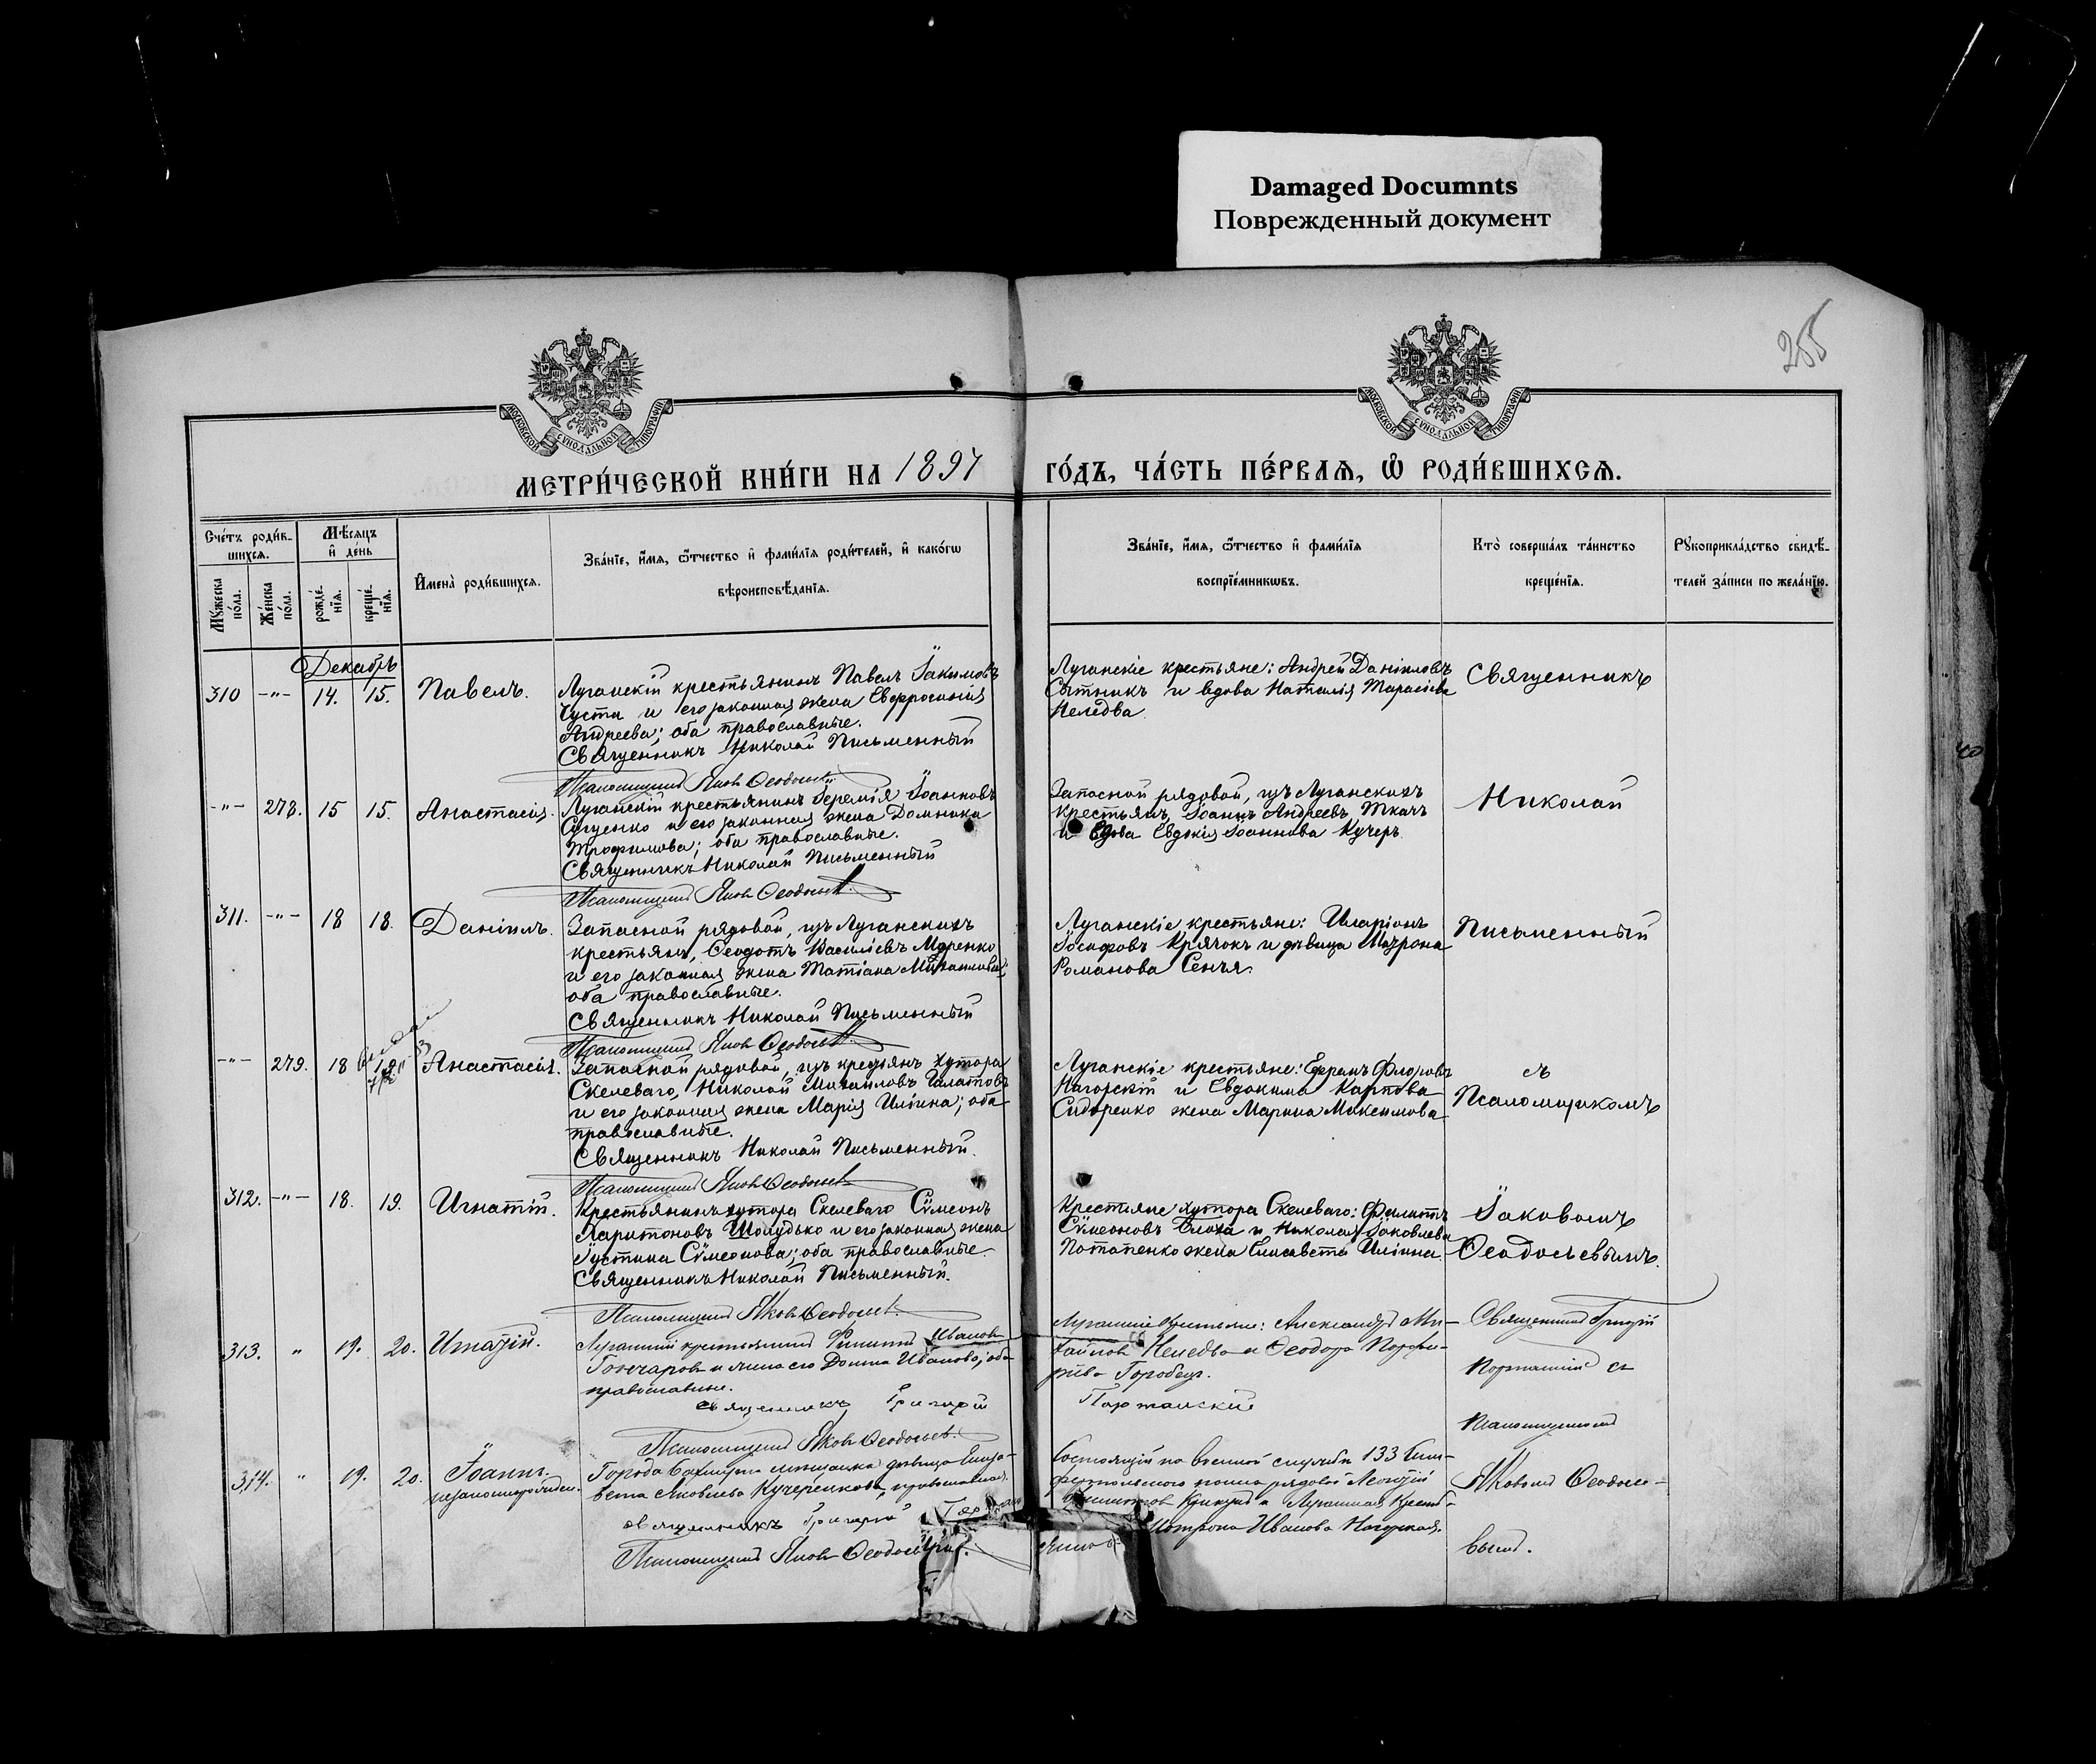 Damaged Documnts
Поврежденный документ
255
МОСКОВСКОЙ СУНОДАЛЬНОЙ ТИПОГРАФІИ
МОСКОВСКОЙ СУНОДАЛЬНОЙ ТИПОГРАФІИ
МЕТРИ́ЧЕСКОЙ КНИ́ГИ НА 1897 ГО́ДЪ, ЧА́СТЬ ПЕ́РВАѦ, Ѡ РОДИ́ВШИХСѦ.
Сче́тъ роди́в-
шихсѧ.
Мѣ́сѧцъ
и҆ де́нь
Мꙋ́жеска
по́ла.
Же́нска
по́ла.
рожде́-
нїѧ.
креще́-
нїѧ.
И҆мена̀ роди́вшихсѧ.
Зва́нїе, и҆́мѧ, ѻ҆́тчество и҆ фами́лїѧ роди́телей, и҆ како́гѡ
вѣроисповѣ́данїѧ.
Зва́нїе, и҆́мѧ, ѻ҆́тчество и҆ фами́лїѧ
воспрїе́мникѡвъ.
Кто̀ соверша́лъ та́инство
креще́нїѧ.
Рꙋкоприкла́дство свидѣ́-
телей за́писи по жела́нїю.
Декабрь
310 -"- 14. 15. Павелъ.
Луганскій крестьянинъ Павелъ Іакимовъ
Чуста и его законная жена Евфросинія
Андреева; оба православные.
Священникъ Николай Письменный
Псаломщикъ Яковъ Ѳеодосьевъ
Луганскіе крестьяне: Андрей Даніиловъ
Сытникъ и вдова Наталія Тарасіева
Неледва
Священникъ
-"- 278. 15 15. Анастасія.
Луганскій крестьянинъ Іеремія Іоанновъ
Сущенко и его законная жена Домника
Трофимова; оба православные.
Священникъ Николай Письменный
Псаломщикъ Яковъ Ѳеодосьевъ
Запасной рядовой, изъ Луганскихъ
крестьянъ, Іоаннъ Андреевъ Ткачъ
и вдова Евдокія Іоаннова Кучеръ
Николай
311. -"- 18 18. Даніилъ.
Запасной рядовой, изъ Луганскихъ
крестьянъ, Ѳеодотъ Василіевъ
и его законная жена Татіана Михаилова;
оба православные.
Священникъ Николай Письменный
Псаломщикъ Яковъ Ѳеодосьевъ
Луганскіе крестьяне: Иларіонъ
Іосифовъ Крячокъ и дѣвица Матрона
Романова Сенча
Письменный
-"- 279. 18 Анастасія.
Запасной рядовой, изъ крестьянъ хутора
Скелеваго, Николай Михаиловъ
и его законная жена Марія Иліина; оба
православные.
Священникъ Николай Письменный.
Псаломщикъ Яковъ Ѳеодосьевъ
Луганскіе крестьяне: Ефремъ Флоровъ
Нагорскій и Евдокима Карпова
Сидоренко жена Марина Максимова
съ
Псаломщикомъ
312. -"- 18. 19. Игнатій.
Крестьянинъ хутора Скелеваго Сѵмеонъ
Харитоновъ Шолудько и его законная жена
Іустина Сѵмеонова; оба православные.
Священникъ Николай Письменный.
Псаломщикъ Яковъ Ѳеодосьевъ.
Крестьяне хутора Скелеваго: Филиппъ
Сѵмеоновъ Блоха и Николая Іаковлева
Потапенко жена Елисавета Иліина.
Іаковомъ
Ѳеодосьевымъ.
313. " 19. 20. Игнатій.
Луганскій крестьянинъ Филиппъ Ивановъ
Гончаровъ и жена его Домна Иванова; оба
православные.
Священникъ Григорій Портанскій
Псаломщикъ Яковъ Ѳеодосьевъ.
Луганскіе крестьяне: Александръ Ми-
хайловъ Неледва и Ѳеодора Порфи-
ріева Горобецъ.
Священникъ Григорій
Портанскій съ
Псаломщикомъ
314. " 19. 20. Іоаннъ,
незаконнорожден.
Города Бахмута мещанка дѣвица Елиза-
вета Яковлева Кучеренкова, православная.
Священникъ Григорій
Псаломщикъ Яковъ Ѳеодосьевъ.
Состоящій на военной службѣ 133 Сим-
феропольскаго полка рядовой
и Луганская крест-
Матрона Иванова Нагорская.
Яковомъ Ѳеодосье-
вымъ.